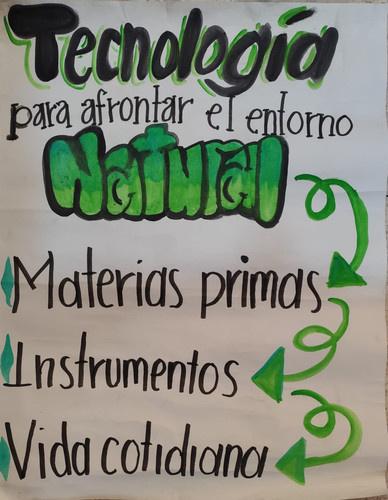 Tecnología
para afrontar el entorno
Natural
Materias primas
Instrumentos
Vida cotidiana